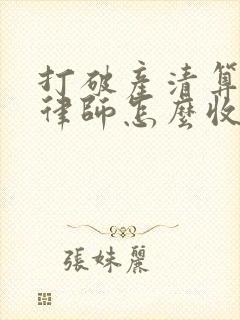 打破產清算
律師怎麼收
張妹麗